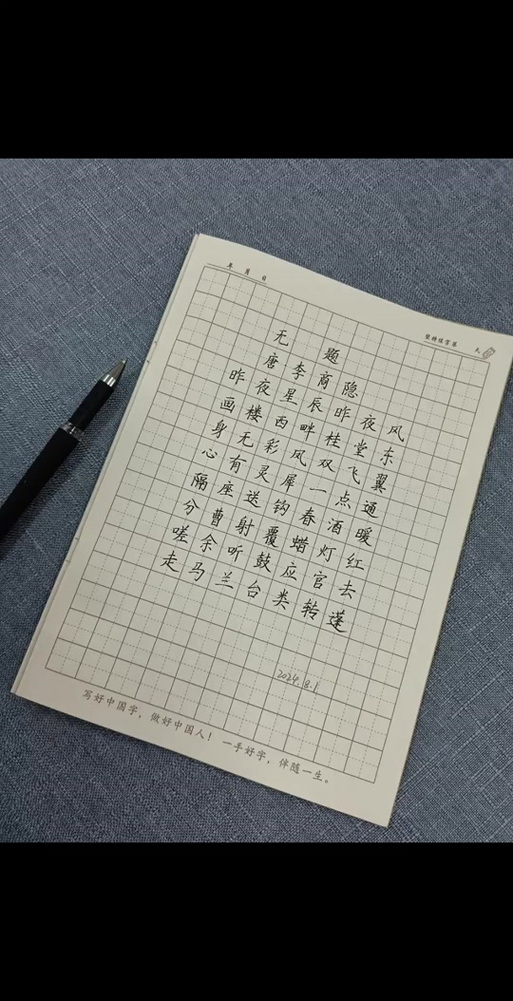 年 月 日
无题
唐 李商隐
昨夜星辰昨夜风
画楼西畔桂堂东
身无彩凤双飞翼
心有灵犀一点通
隔座送钩春酒暖
分曹射覆蜡灯红
嗟余听鼓应官去
走马兰台类转蓬
2024.8.1
写好中国字，做好中国人！一手好字，伴随一生。